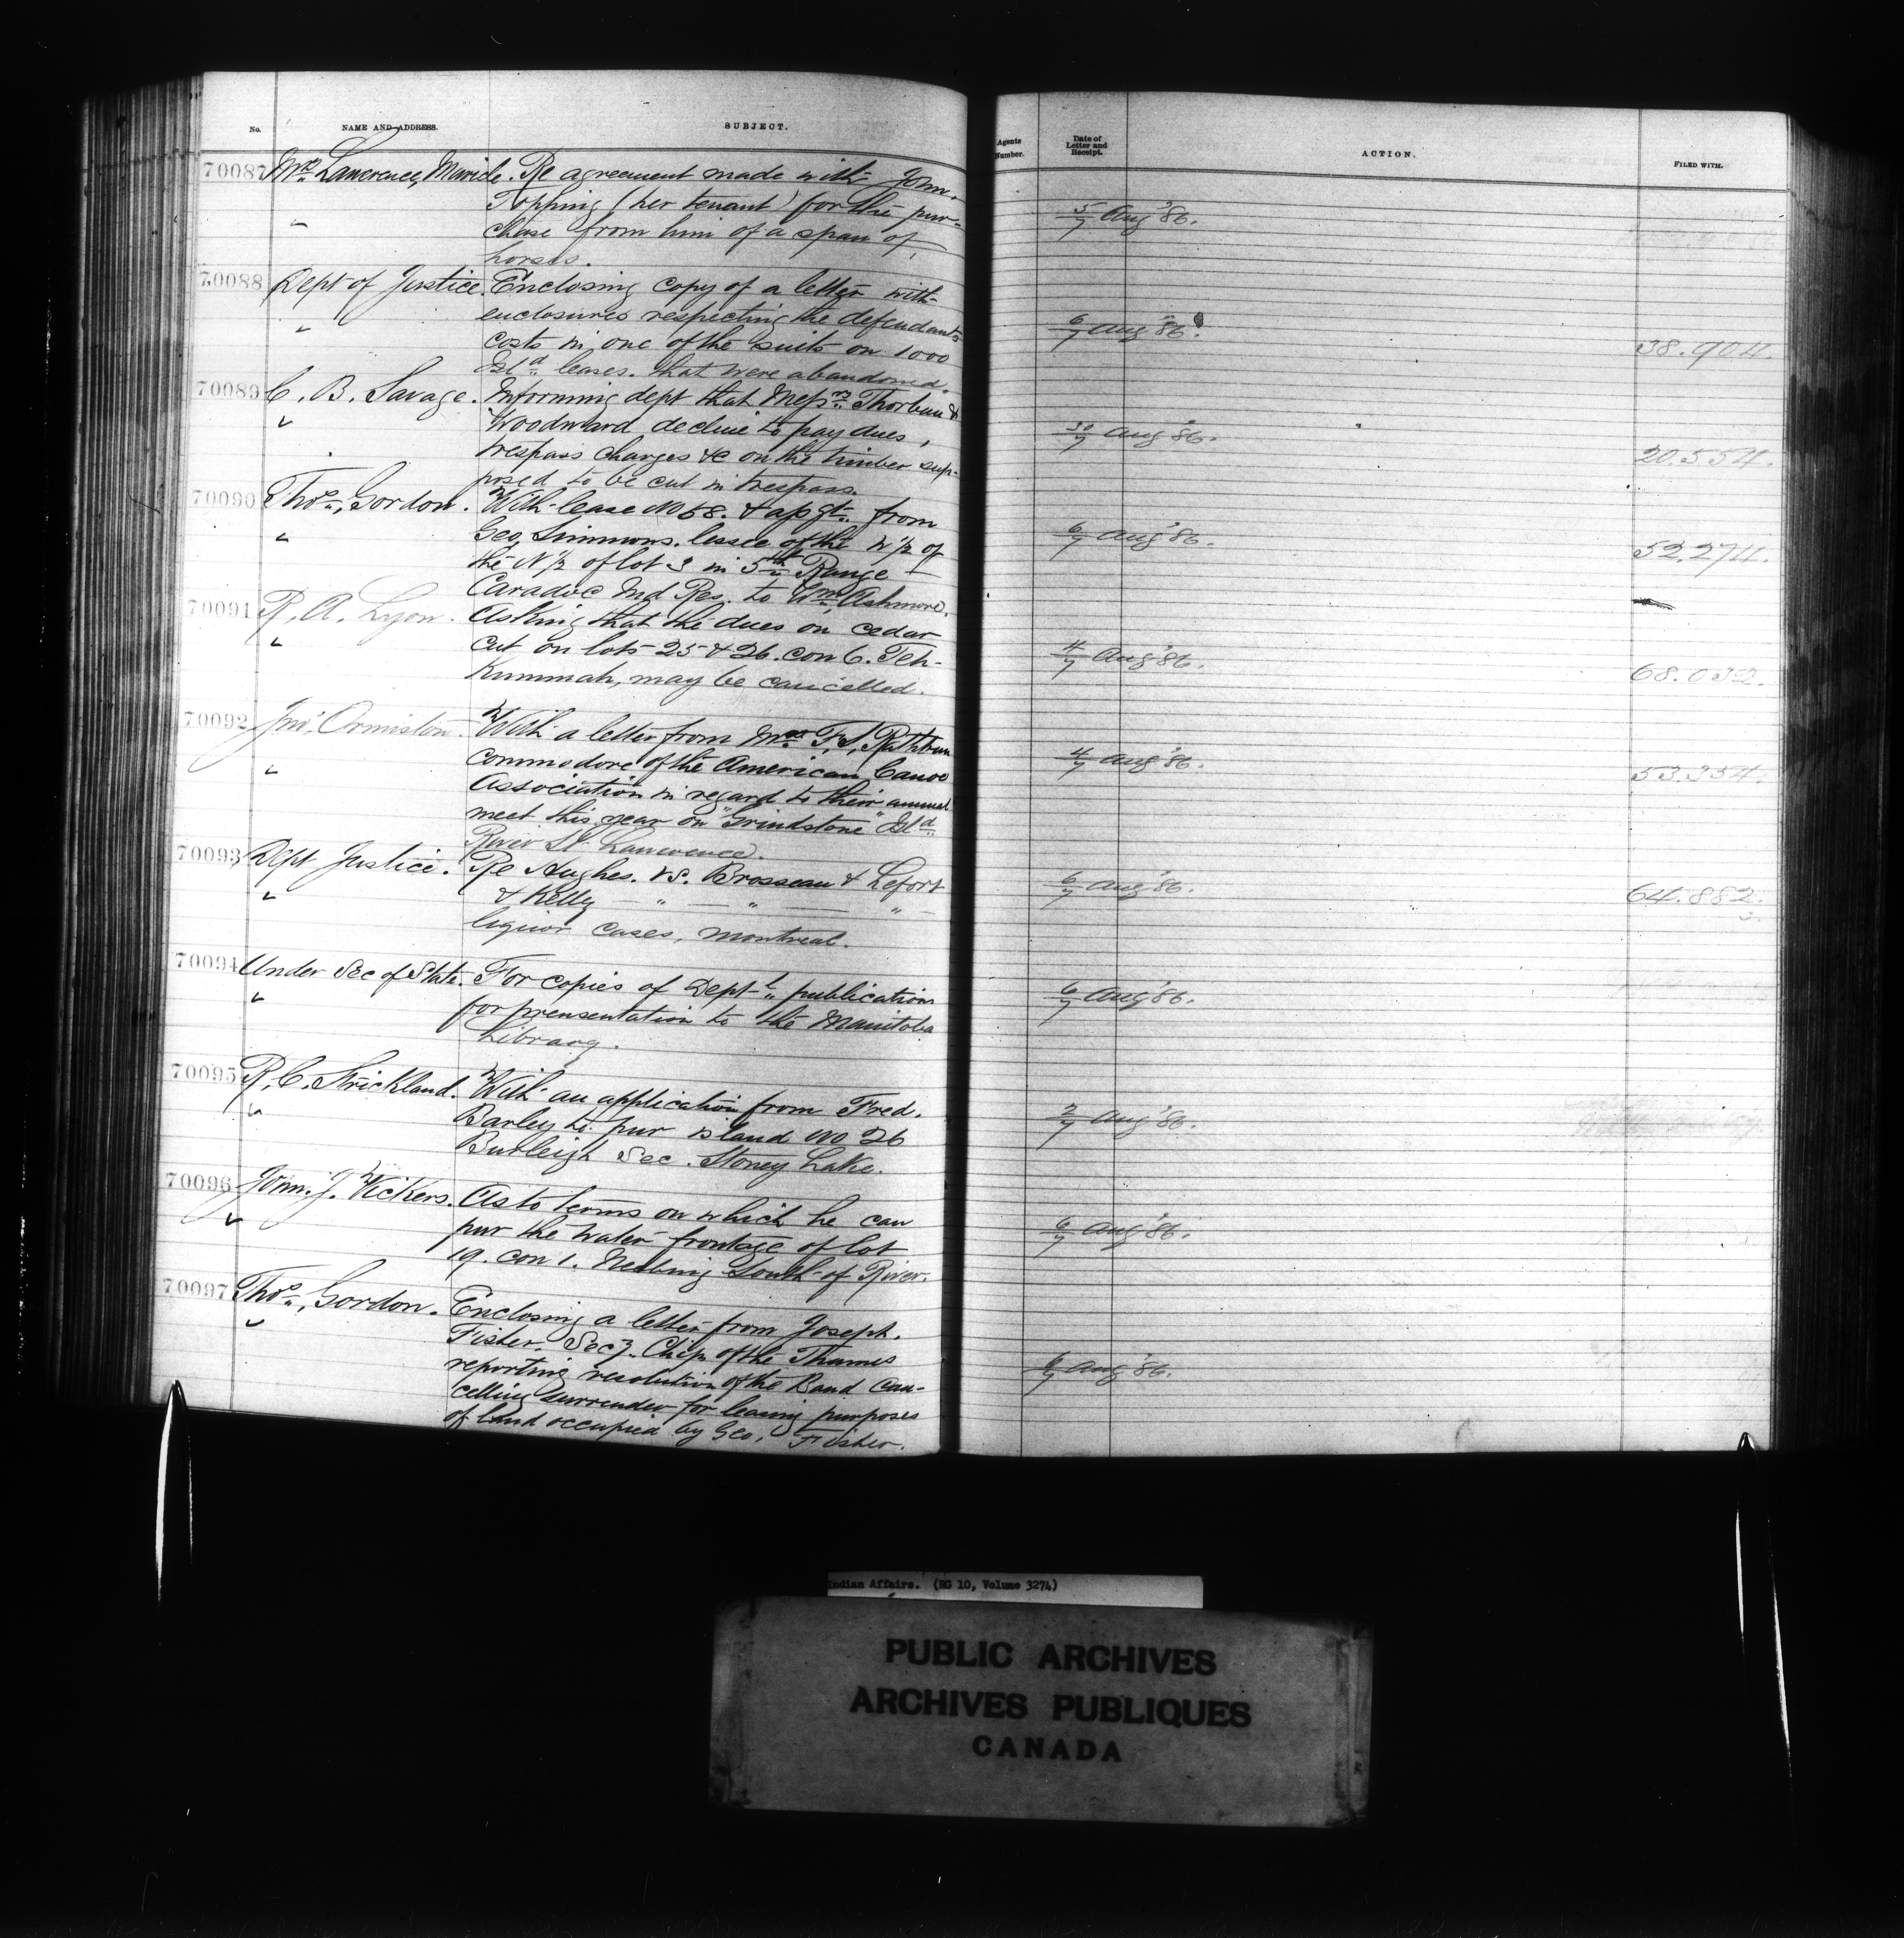 No. NAME AND ADDRESS. SUBJECT.
Agents Number. Date of Letter and Receipt. ACTION. FILED WITH.
70087 Mrs Lawrence, Maricle. Re agreement made with John
Topping (her tenant) for the pur-
chase from him of a span of
horses.
5/7 Aug '86.
70088 Dept of Justice. Enclosing copy of a letter with
enclosures respecting the defendants
costs in one of the suits on 1000
Isld leases. that were abandoned.
6/7 Aug '86. 38.904.
70089 C. B. Savage. Informing dept that Messrs Thorburn &
Woodward decline to pay dues,
trespass charges &c on the timber sup-
posed to be cut in trespass.
30/7 Aug '86. 20.554.
70090 Thos. Gordon. With lease No 58. & apgt. from
Geo. Simmons. lessee of the W 1/2 of
the N 1/2 of lot 3 in 5th Range
Caradoc Ind Res. to Wm Ashmore.
6/7 Aug '86. 52.274.
70091 R. A. Lyon. Asking that the dues on cedar
cut on lots 25 & 26. con 6. Teh-
kummah, may be cancelled.
4/7 Aug '86. 68.032.
70092 Jno. Ormiston. With a letter from F. S. Rathbun
Commodore of the American Canoe
Association in regard to their annual
meet this year on "Grindstone" Isld
River St. Lawrence.
4/7 Aug '86. 53.354.
70093 Dept Justice. Re Hughes. vs. Brosseau & Lefort
& Kelly — " — " — " —
liquor cases, Montreal.
6/7 Aug '86. 64.882.
70094 Under Sec of State. For copies of Dept-l publications
for prensentation to the Manitoba
Library.
6/7 Aug '86.
70095 R. C. Strickland. With an application from Fred.
Barley to pur island No 26
Burleigh Sec. Stoney Lake.
2/7 Aug '86.
70096 John. J. Vickers. As to terms on which he can
pur the water frontage of lot
19. con 1. Neebing South of River.
6/7 Aug '86.
70097 Thos. Gordon. Enclosing a letter from Joseph.
Fisher. Secy. Chip. of the Thames
reporting resolution of the Band can-
celling surrender for leasing purposes
of land occupied by Geo. Fisher.
6/7 Aug '86.
Indian Affairs. (RG 10, Volume 3274)
PUBLIC ARCHIVES
ARCHIVES PUBLIQUES
CANADA